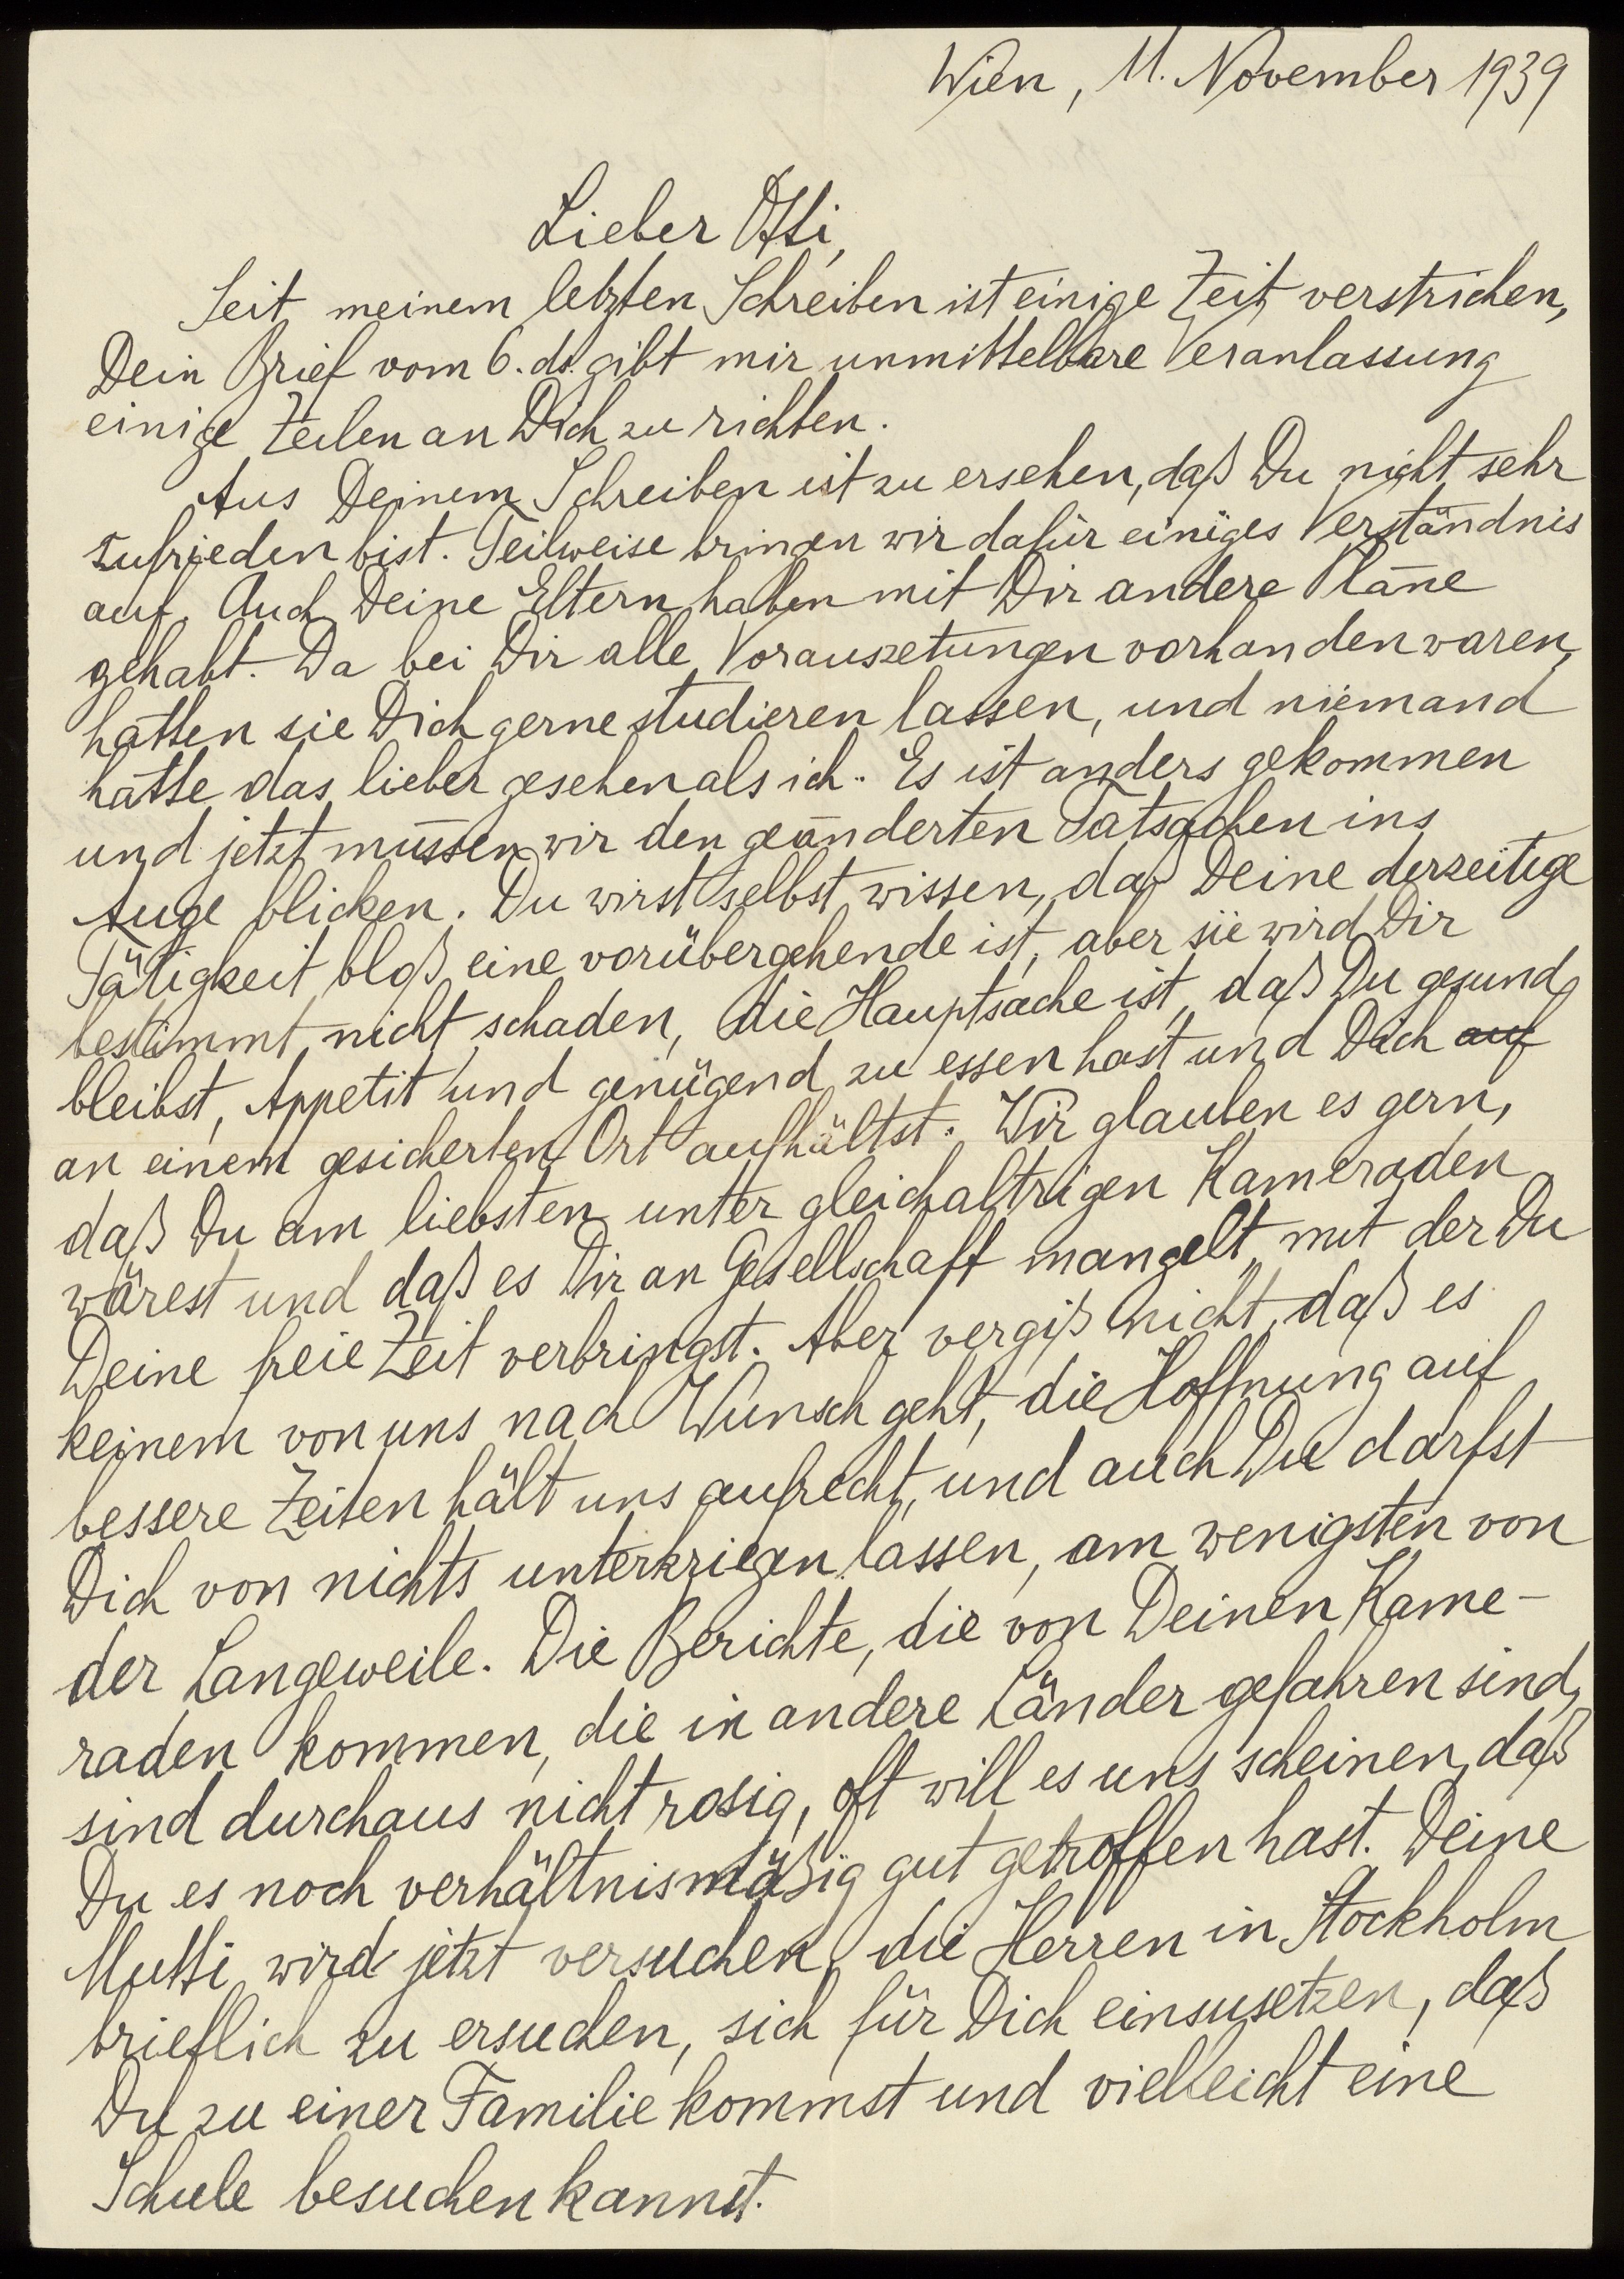 Wien, 11. November 1939
Lieber Otti,
Seit meinem letzten Schreiben ist einige Zeit verstrichen,
Dein Brief vom 6. ds. gibt mir unmittelbare Veranlassung
einige Zeilen an Dich zu richten.
Aus Deinem Schreiben ist zu ersehen, daß Du nicht sehr
zufrieden bist. Teilweise bringen wir dafür einiges Verständnis
auf. Auch Deine Eltern haben mit Dir andere Pläne
gehabt. Da bei Dir alle Vorauszetungen vorhanden waren,
hätten sie Dich gerne studieren lassen, und niemand
hätte das lieber gesehen als ich. Es ist anders gekommen
und jetzt müssen wir den geänderten Tatsachen ins
Auge blicken. Du wirst selbst wissen, daß Deine derzeitige
Tätigkeit bloß eine vorübergehende ist, aber sie wird Dir
bestimmt nicht schaden, die Hauptsache ist, daß Du gesund
bleibst, Appetit und genügend zu essen hast und Dich auf
an einem gesicherten Ort aufhältst. Wir glauben es gern,
daß Du am liebsten unter gleichaltrigen Kameraden
wärest und daß es Dir an Gesellschaft mangelt, mit der Du
Deine freie Zeit verbringst. Aber vergiß nicht, daß es
keinem von uns nach Wunsch geht, die Hoffnung auf
bessere Zeiten hält uns aufrecht, und auch Du darfst
Dich von nichts unterkriegen lassen, am wenigsten von
der Langeweile. Die Berichte, die von Deinen Kame-
raden kommen, die in andere Länder gefahren sind,
sind durchaus nicht rosig, oft will es uns scheinen, daß
Du es noch verhältnismäßig gut getroffen hast. Deine
Mutti wird jetzt versuchen, die Herren in Stockholm
brieflich zu ersuchen, sich für Dich einzusetzen, daß
Du zu einer Familie kommst und vielleicht eine
Schule besuchen kannst.